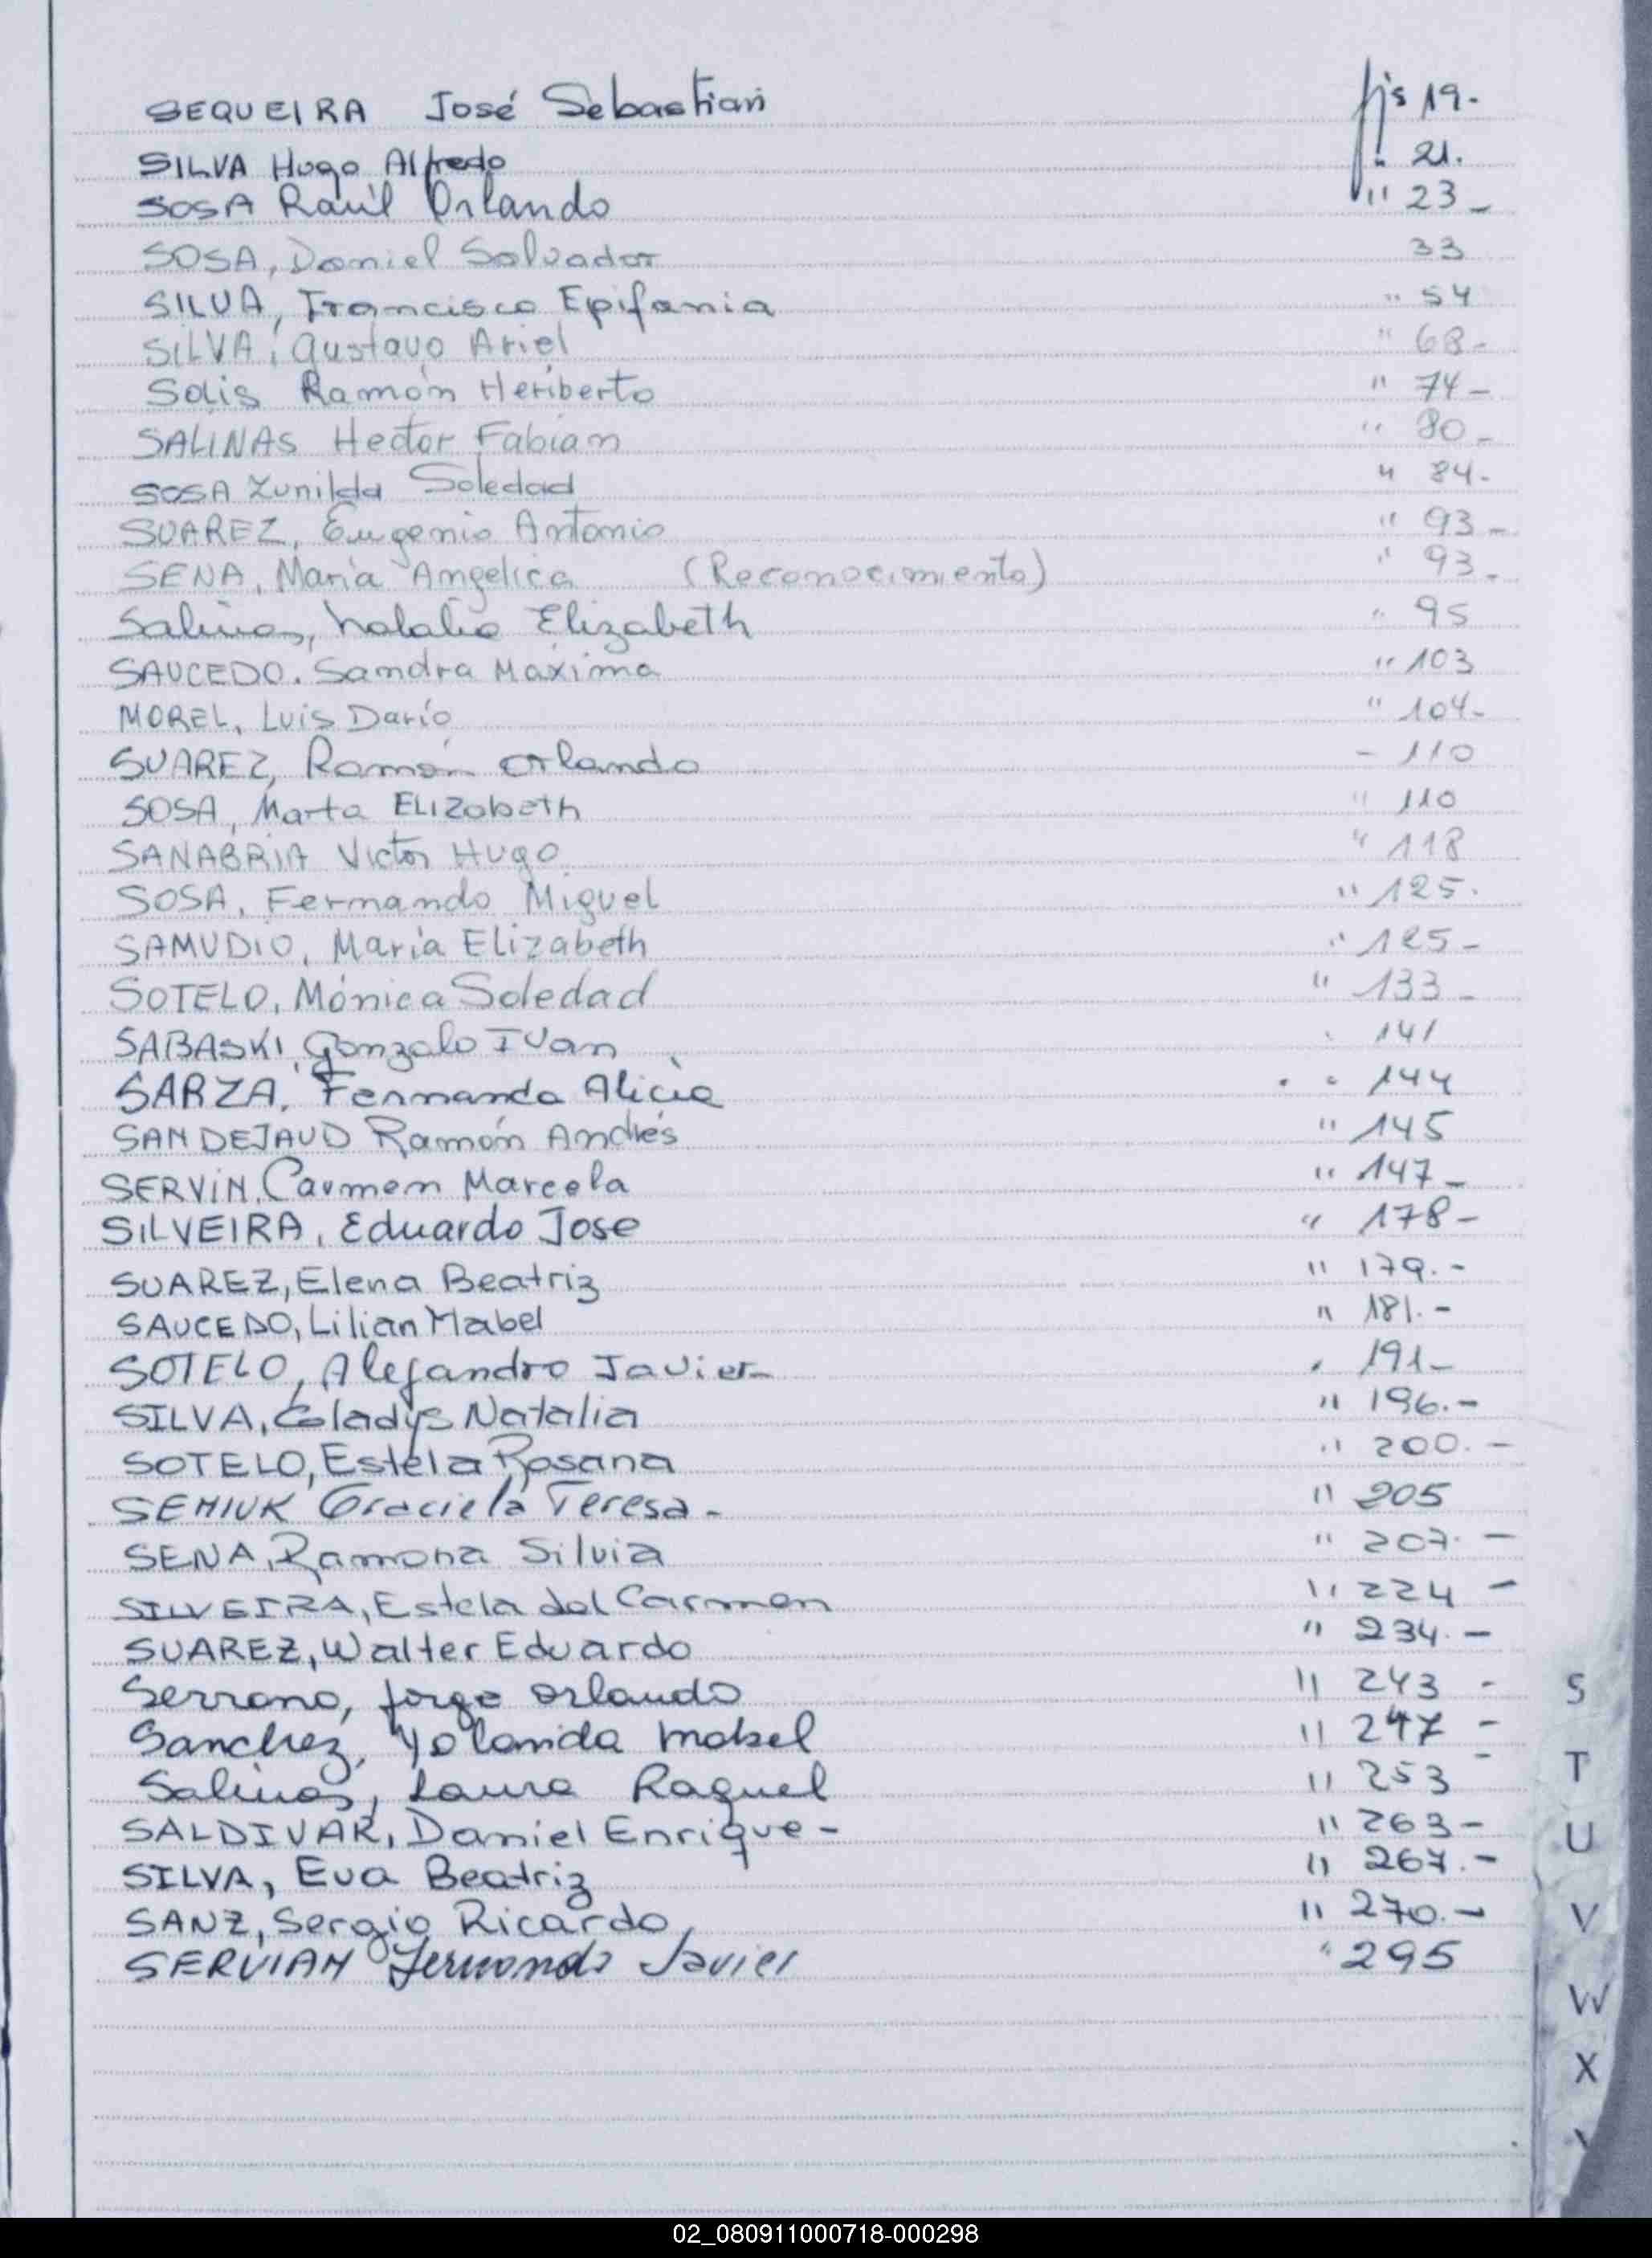 SEQUEIRA José Sebastian fjs 19.-
SILVA Hugo Alfredo " 21.
SOSA Raúl Orlando " 23-
SOSA, Daniel Salvador 33
SILVA, Francisco Epifania " 54
SILVA, Gustavo Ariel " 68-
Solis Ramón Heriberto " 74-
SALINAS Hector Fabián " 80-
SOSA Zunilda Soledad " 84-
SUAREZ, Eugenio Antonio " 93-
SENA, María Angelica (Reconocimiento) " 93-
Salinas, Natalia Elizabeth " 95
SAUCEDO. Sandra Maxima " 103
MOREL, Luis Darío " 104-
SUAREZ, Ramón Orlando - 110
SOSA, Marta ELIZabeth " 110
SANABRIA Victor Hugo " 118
SOSA, Fernando Miguel " 125.
SAMUDIO, María Elizabeth " 125-
SOTELO, Mónica Soledad " 133-
SABASKI, Gonzalo IVan " 141
SARZA, Fernanda Alicia " 144
SANDEJAUD Ramón Andrés " 145
SERVIN, Carmen Marcela " 147-
SILVEIRA, Eduardo Jose " 178-
SUAREZ, Elena Beatriz " 179.-
SAUCEDO, Lilian Mabel " 181.-
SOTELO, Alejandro Javier- " 191-
SILVA, Gladys Natalia " 196.-
SOTELO, Estela Rosana " 200.-
SEMIUK Graciela Teresa- " 205
SENA, Ramona Silvia " 207.-
SILVEIRA, Estela del Carmen " 224 -
SUAREZ, Walter Eduardo " 234.-
Serrano, Jorge Orlando " 243 -
S
Sanchez, Yolanda Mabel " 247 -
Salinas, Laura Raquel " 253 -
T
SALDIVAR, Daniel Enrique- " 263-
U
SILVA, Eva Beatriz " 267.-
SANZ, Sergio Ricardo " 270.-
V
SERVIAN Fernando Javier " 295
W
X
Y
02_080911000718-000298